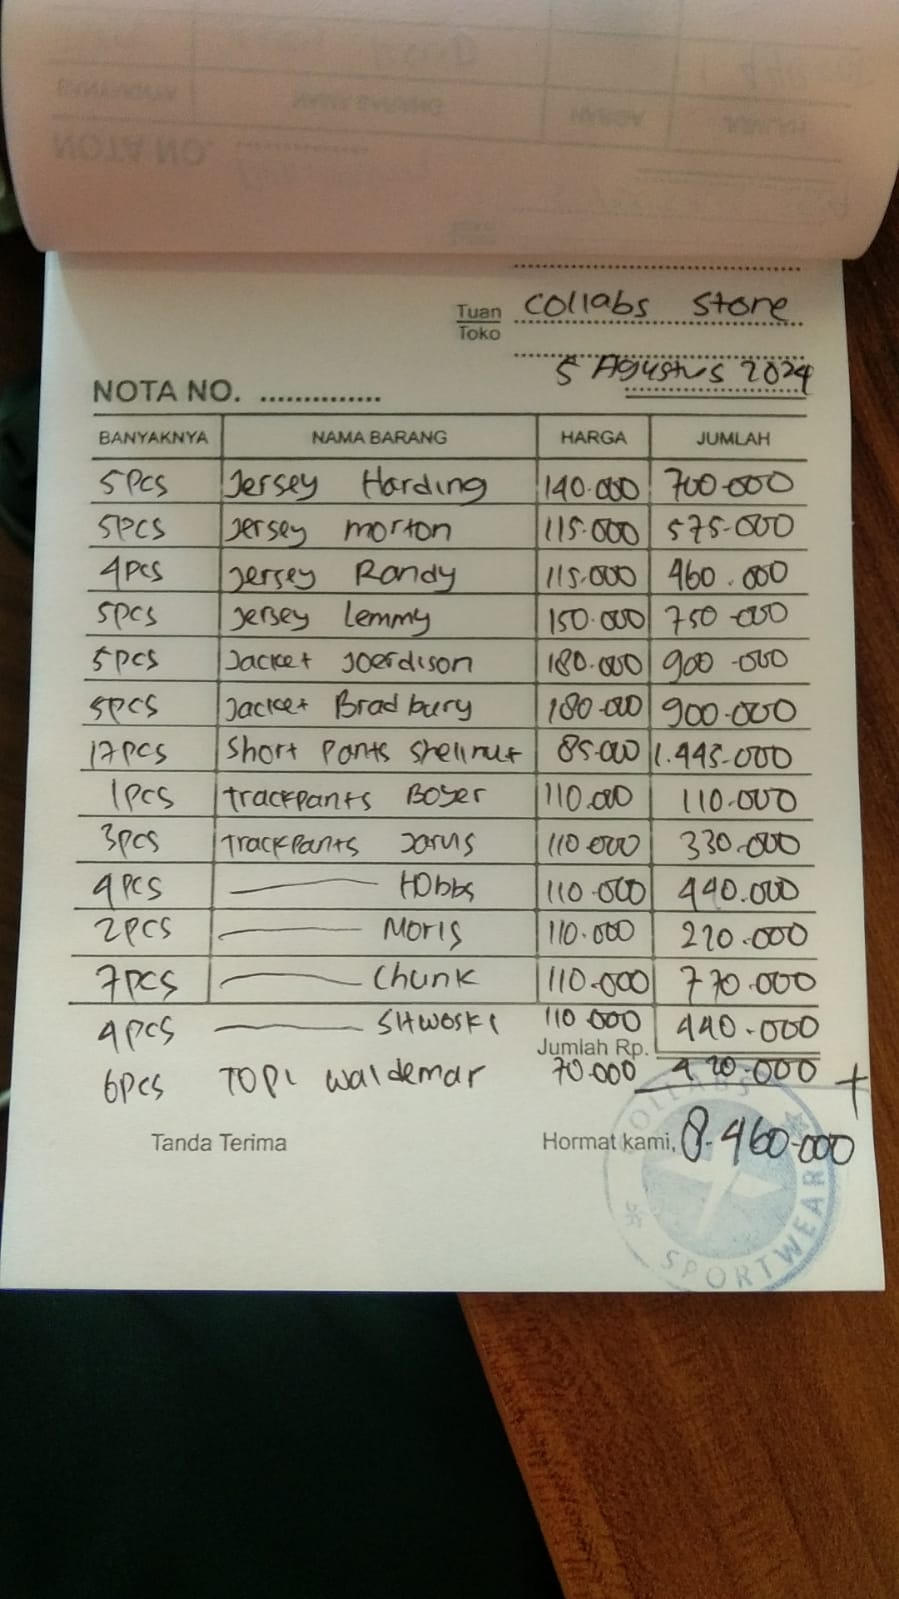 Tuan Collabs Store
Toko
5 Agustus 2024
NOTA NO. ..............
BANYAKNYA NAMA BARANG HARGA JUMLAH
5pcs Jersey Harding 140.000 700.000
5pcs Jersey morton 115.000 575.000
4pcs Jersey Randy 115.000 460.000
5pcs Jersey Lemmy 150.000 750.000
5pcs Jacket Joerdison 180.000 900.000
5pcs Jacket Bradbury 180.000 900.000
17pcs Short Pants Shellnut 85.000 1.445.000
1pcs trackpants Boyer 110.000 110.000
3pcs trackpants Jarus 110.000 330.000
4pcs Hobbs 110.000 440.000
2pcs Moris 110.000 220.000
7pcs Chunk 110.000 770.000
4pcs SHWOSKI 110 000 440.000
Jumlah Rp.
6pcs TOPI Waldemar 70.000 420.000 +
Tanda Terima Hormat kami, 8.460.000
COLLABS
SPORTWEAR